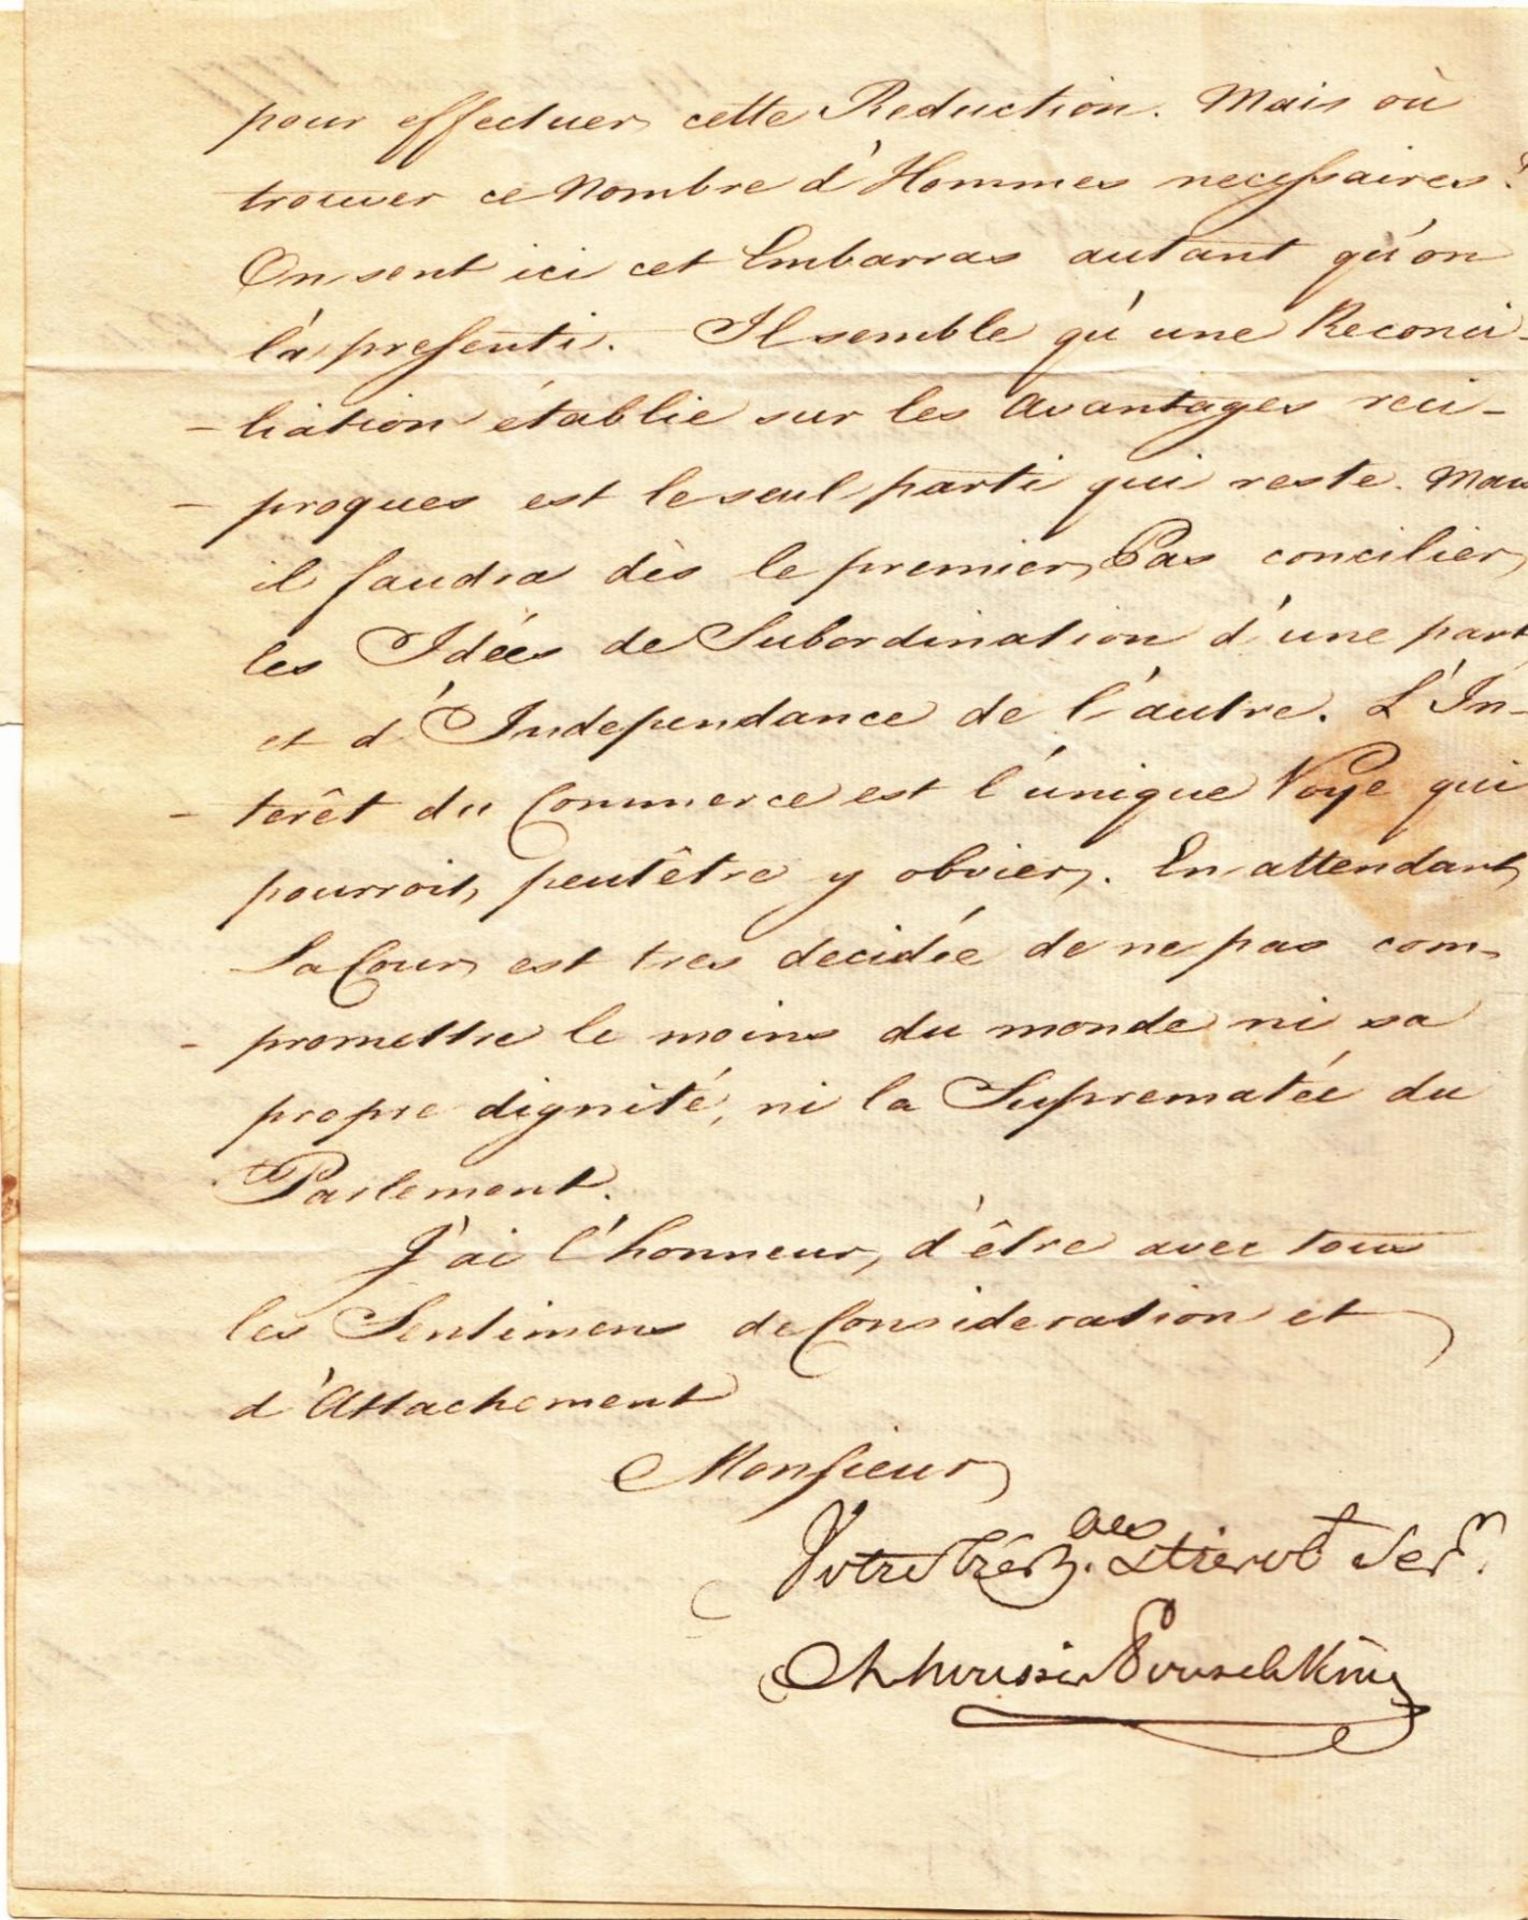 pour effectuer cette Reduction. Mais où
trouver ce Nombre d'Hommes necessaires?
On sent ici cet Embarras autant qu'on
l'a presenti. Il semble qu'une Reconci-
-liation établie sur les Avantages reci-
-proques est le seul parti qui reste. Mais
il faudra dès le premier Pas concilier
les Idées de Subordination d'une part
et d'Independance de l'autre. L'In-
-terêt du Commerce est l'unique Voye qui
pourroit peutêtre y obvier. En attendant
la Cour est tres decidée de ne pas com-
-promettre le moins du monde ni sa
propre dignité, ni la Suprematée du
Parlement.
J'ai l'honneur d'être avec tous
les Sentimens de Consideration et
d'Attachement
Monsieur
Votre très h. et
Pouschkin